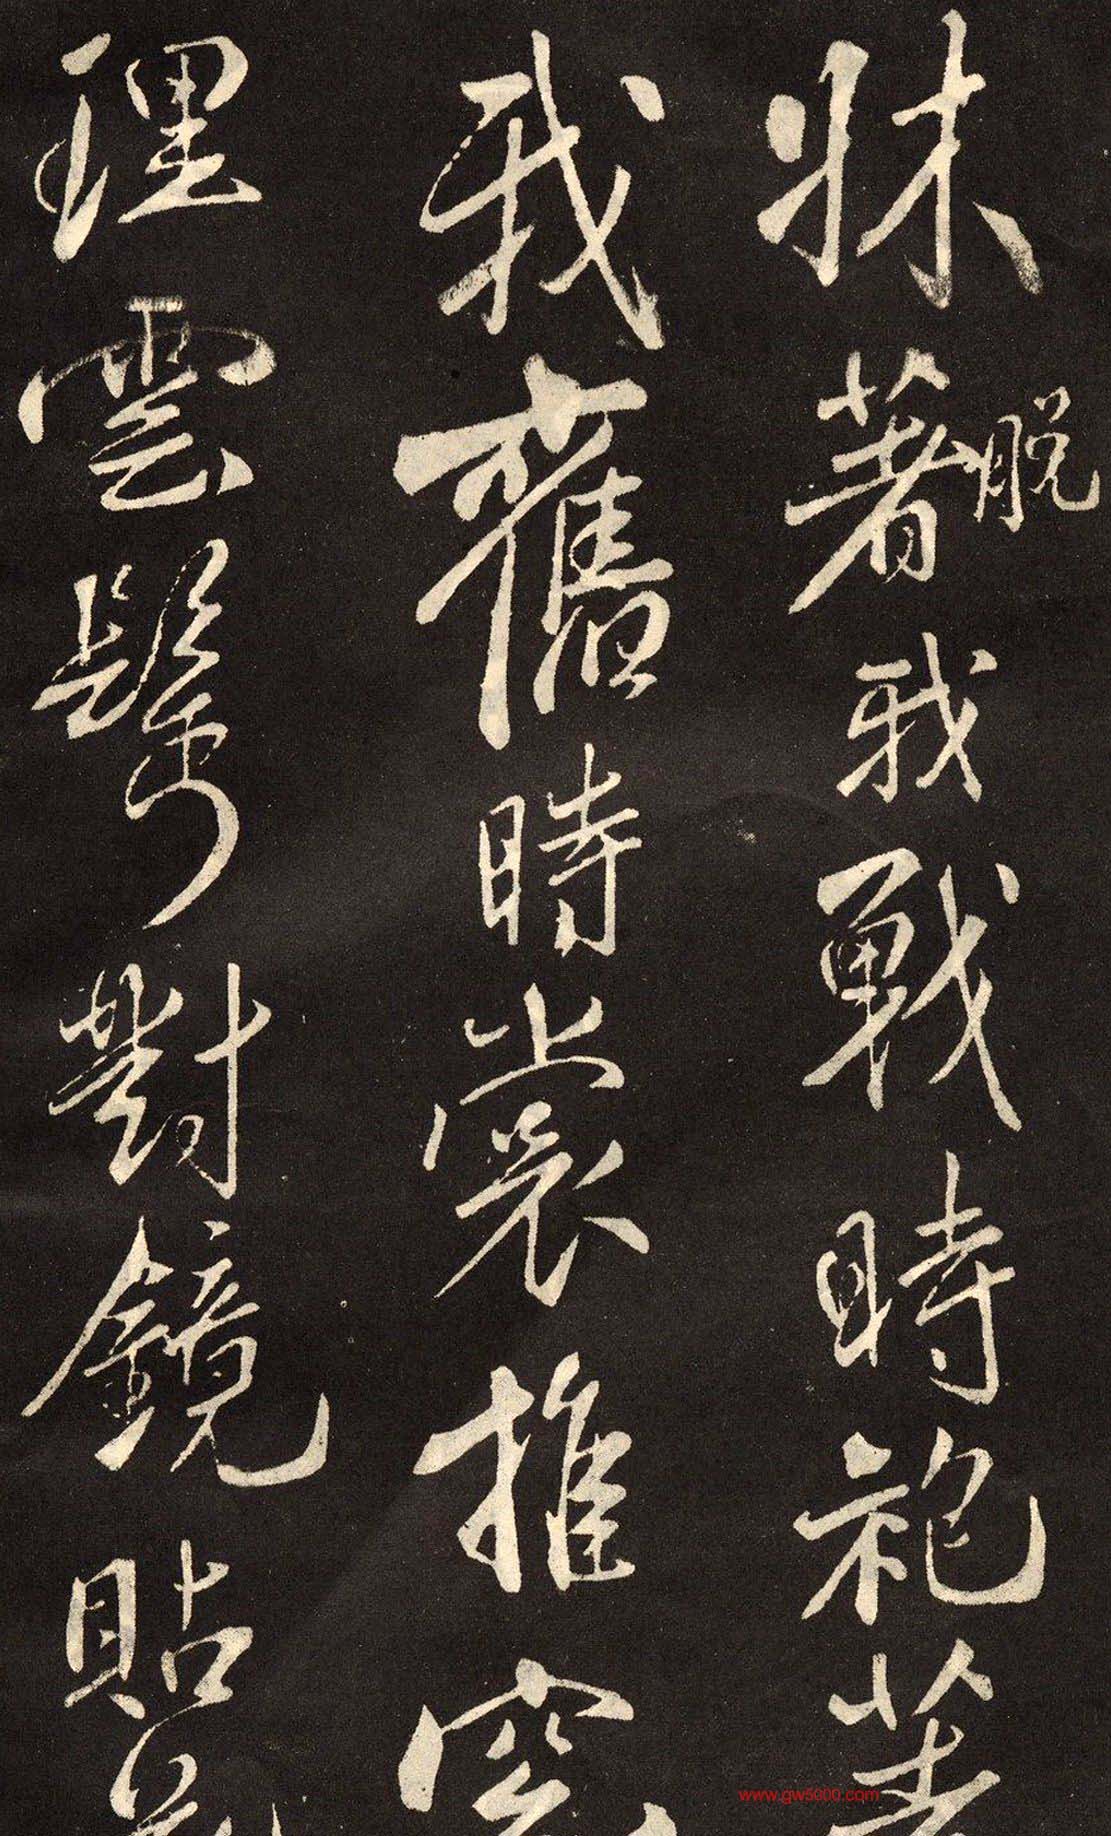 牀著脫我戰時袍著
我舊時裳推窓
理雲鬢對鏡貼
www.gw5000.com